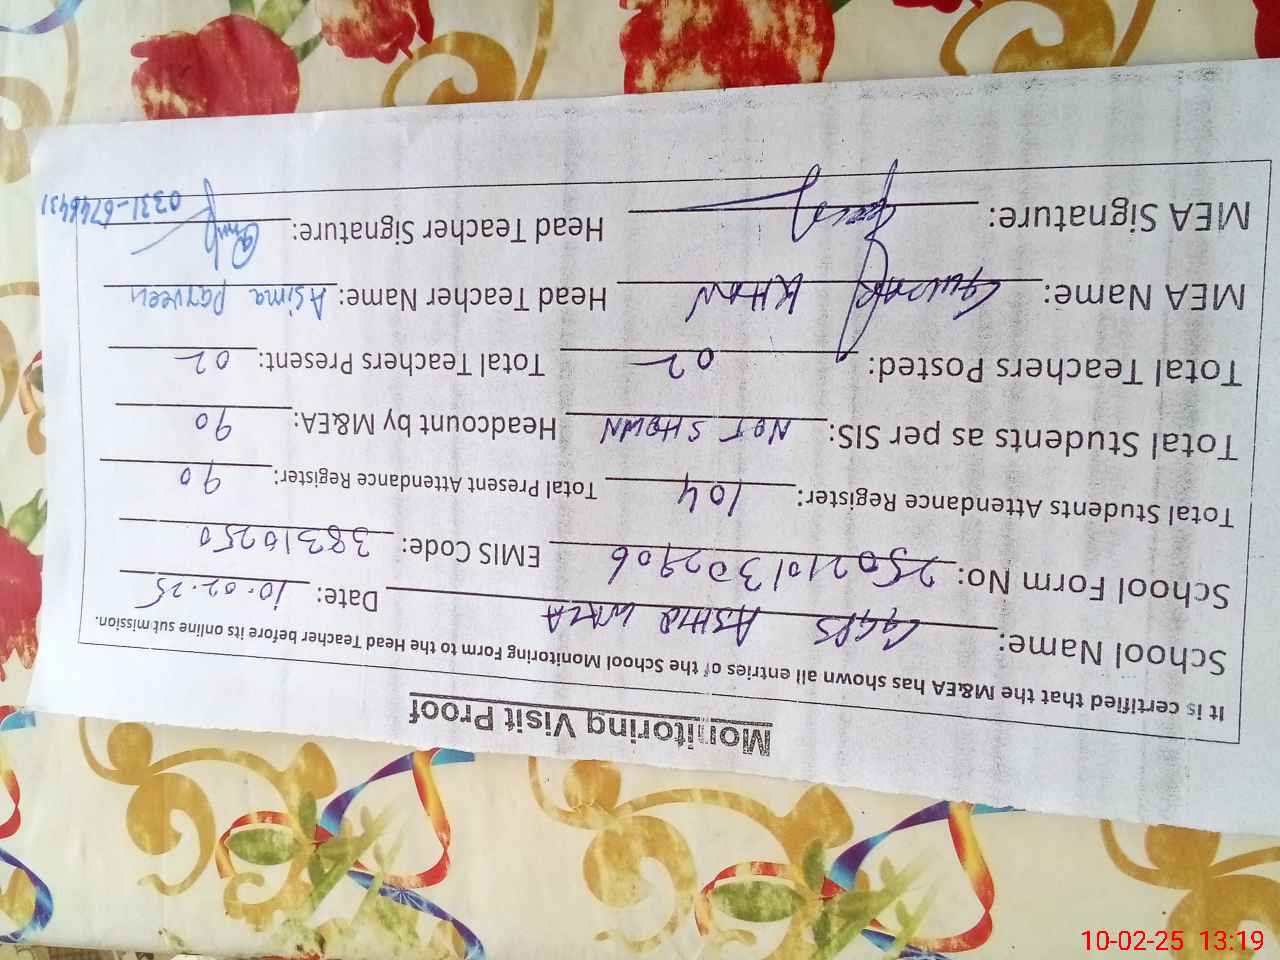 Monitoring Visit Proof
It is certified that the M&EA has shown all entries of the School Monitoring Form to the Head Teacher before its online submission.
School Name: GGPS ASHIQ Date: 10.02.25
School Form No: 2502101302906 EMIS Code: 38310250
Total Students Attendance Register: 104 Total Present Attendance Register: 90
Total Students as per SIS: NOT SHOWN Headcount by M&EA: 90
Total Teachers Posted: 02 Total Teachers Present: 02
MEA Name: KHAN Head Teacher Name: Asima Parveen
MEA Signature: Head Teacher Signature:
0331-6746431
10-02-25 13:19